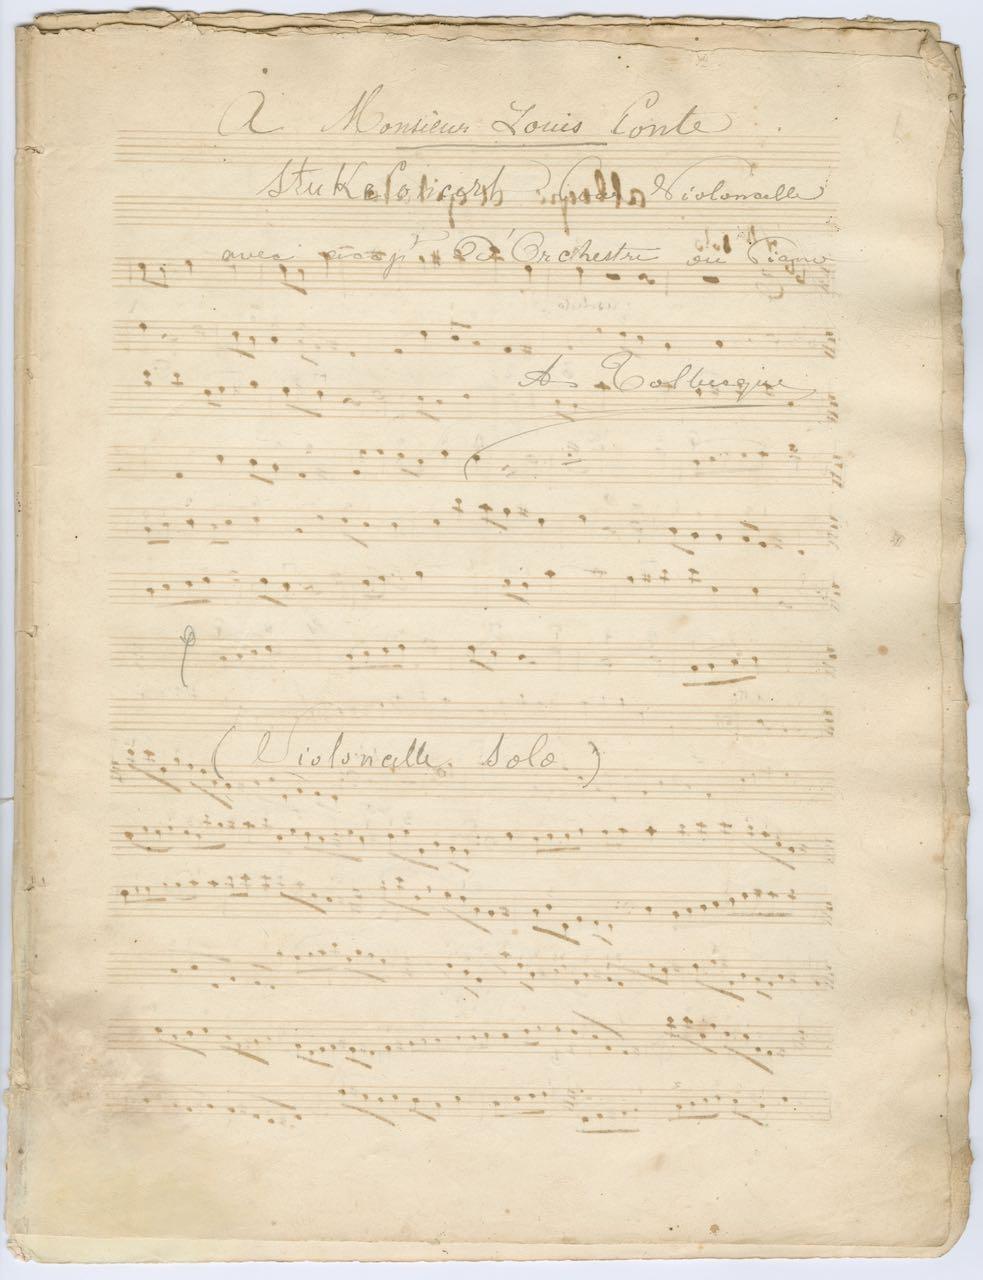 A Monsieur Louis Conte
Violoncelle
avec D'Orchestre ou Piano
A. Tolbecque
(Violoncelle Solo)